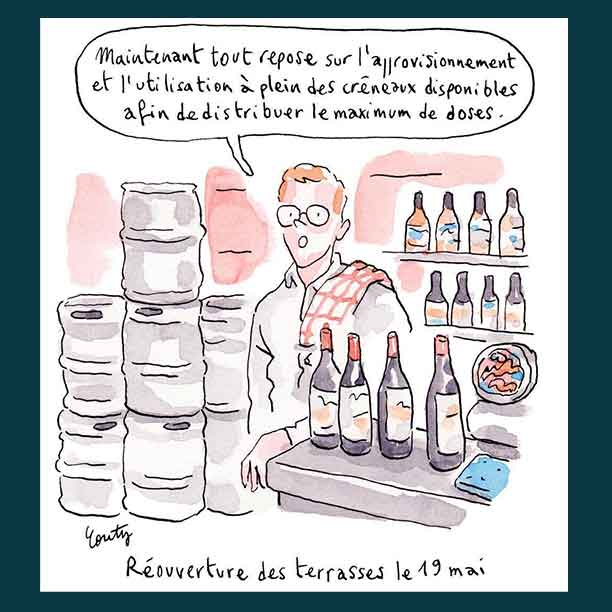 Maintenant tout repose sur l'approvisionnement
et l'utilisation à plein des créneaux disponibles
afin de distribuer le maximum de doses.
Couty
Réouverture des terrasses le 19 mai